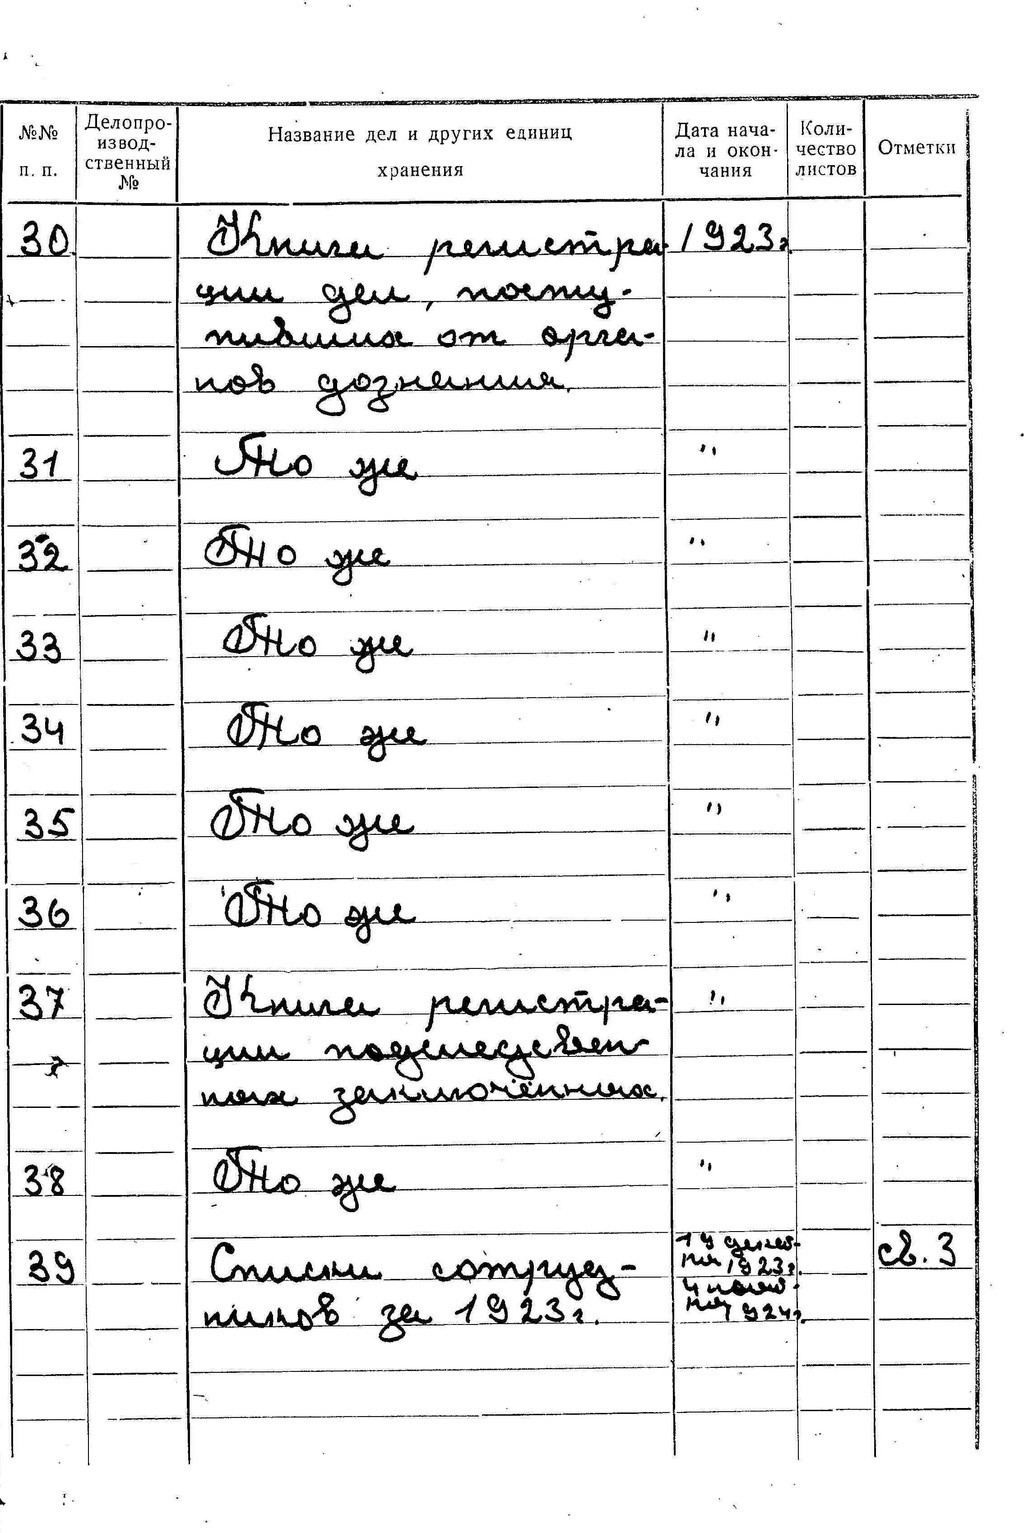 №№ п. п.
Делопро-
извод-
ственный
№
Название дел и других единиц
хранения
Дата нача-
ла и окон-
чания
Коли-
чество
листов
Отметки
30. Книга регистра- 1923г.
ции дел, посту-
пивших от орга-
нов дознания.
31 То же "
32 То же "
33 То же "
34 То же "
35 То же "
36 То же "
37 Книга регистра- "
ции подследствен
ных заключённых.
38 То же "
39 Списки сотруд-
ников за 1923г.
1923г.
1924г.
св. 3